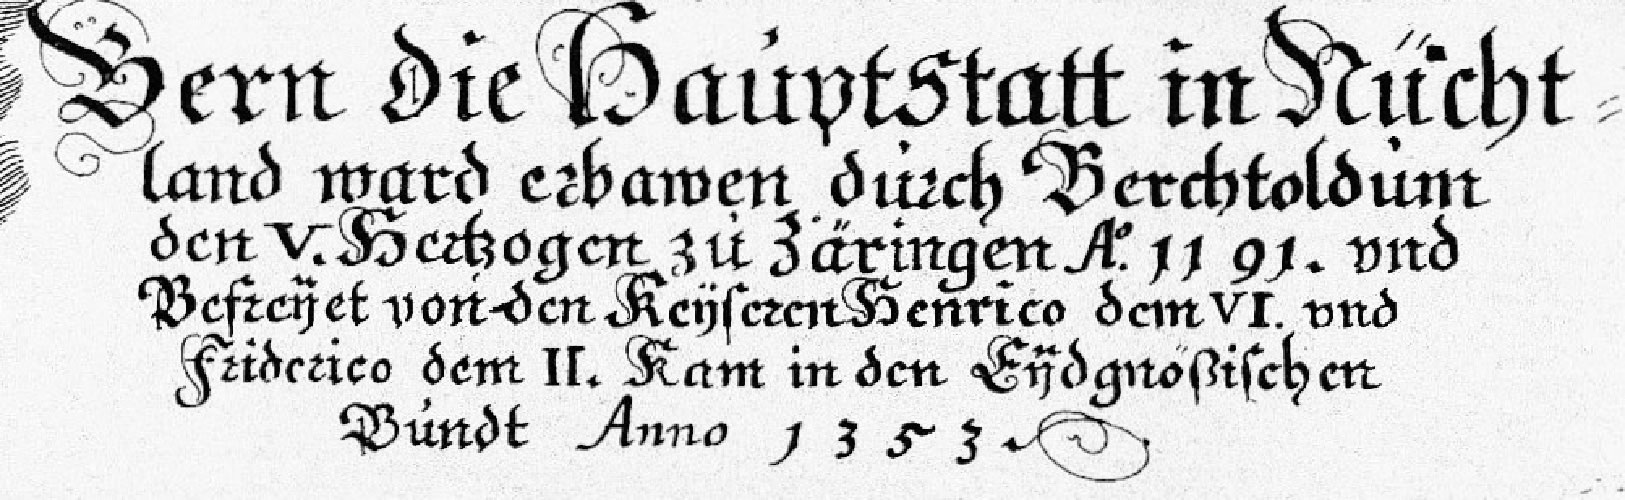 Bern die Hauptstatt in Nücht=
land ward erbawen durch Berchtoldum
den V. Hertzogen zu Zäringen Aº. 1191. vnd
Befreÿet von den Keÿseren Henrico dem VI. vnd
Friderico dem II. Kam in den Eÿdgnößischen
Bundt Anno 1353.